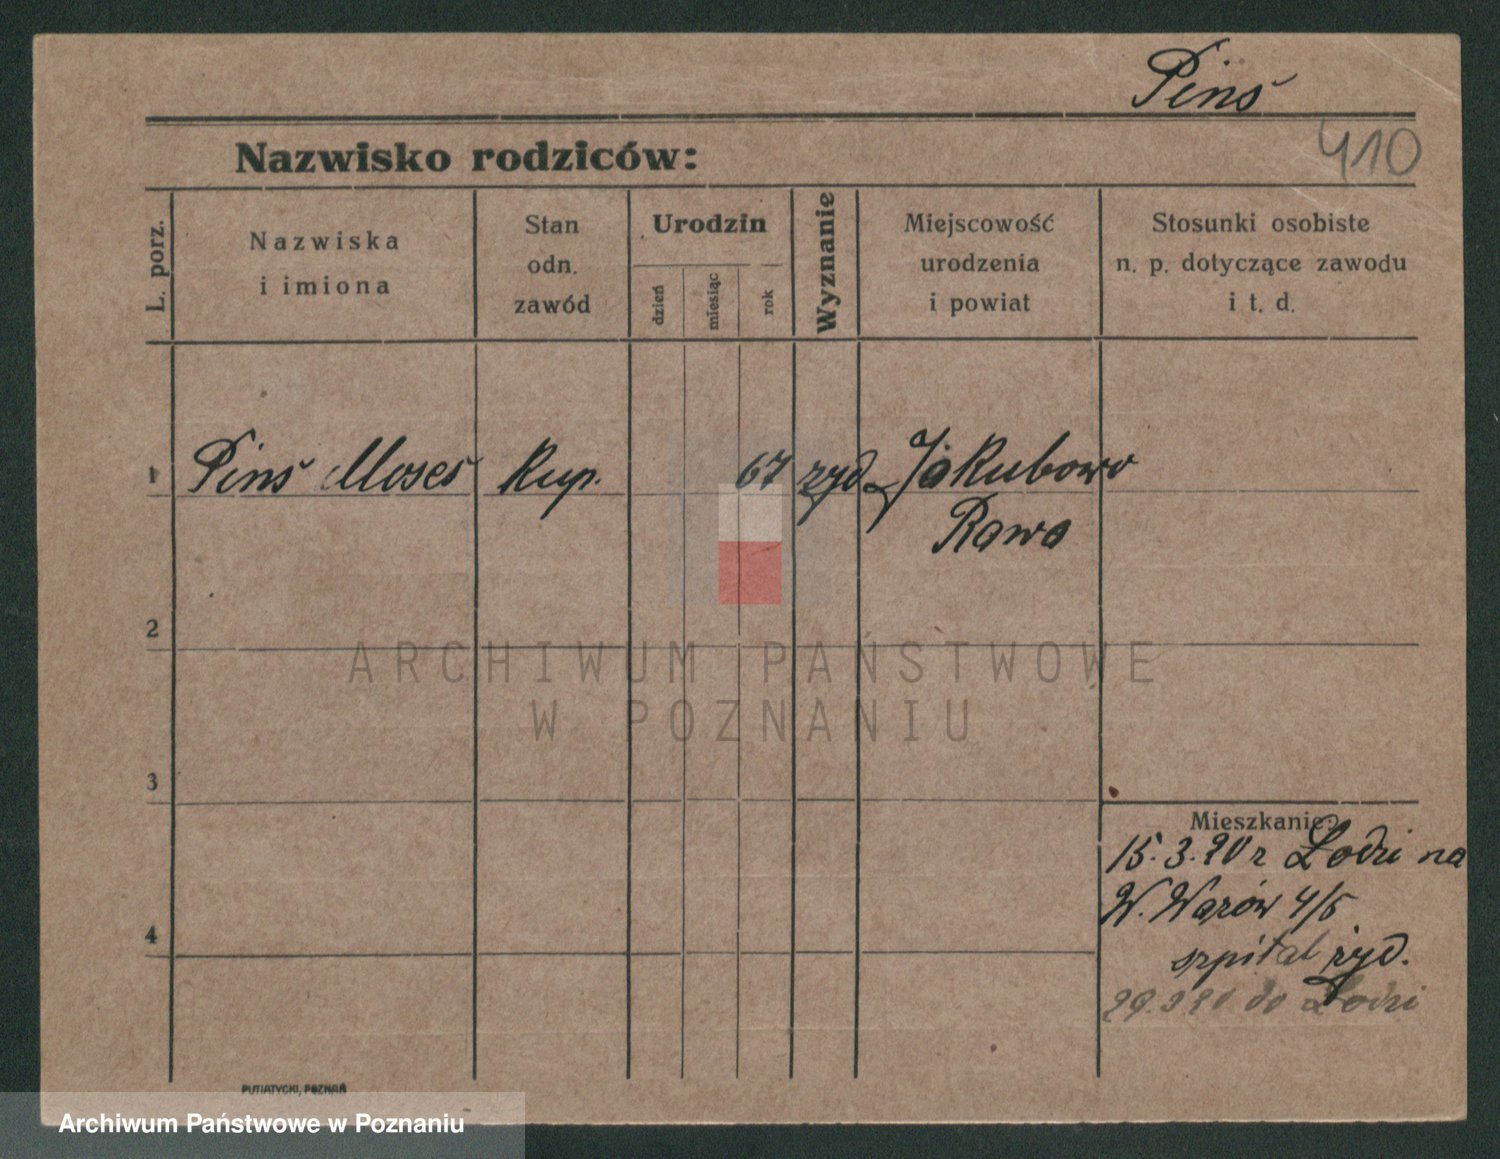 Pinś
Nazwisko rodziców:
410
L. porz.
Nazwiska
i imiona
Stan
odn.
zawód
Urodzin
dzień
miesiąc
rok
Wyznanie
Miejscowość
urodzenia
i powiat
Stosunki osobiste
n. p. dotyczące zawodu
i t. d.
1
Pinś Moses
Kup.
67
żyd
Jakubowo
Rawa
2
3
4
Mieszkanie:
15.3.20 z Łodzi na
W.
4/5
szpital żyd.
do Łodzi
PUTIATYCKI, POZNAŃ
ARCHIWUM PAŃSTWOWE
W POZNANIU
Archiwum Państwowe w Poznaniu